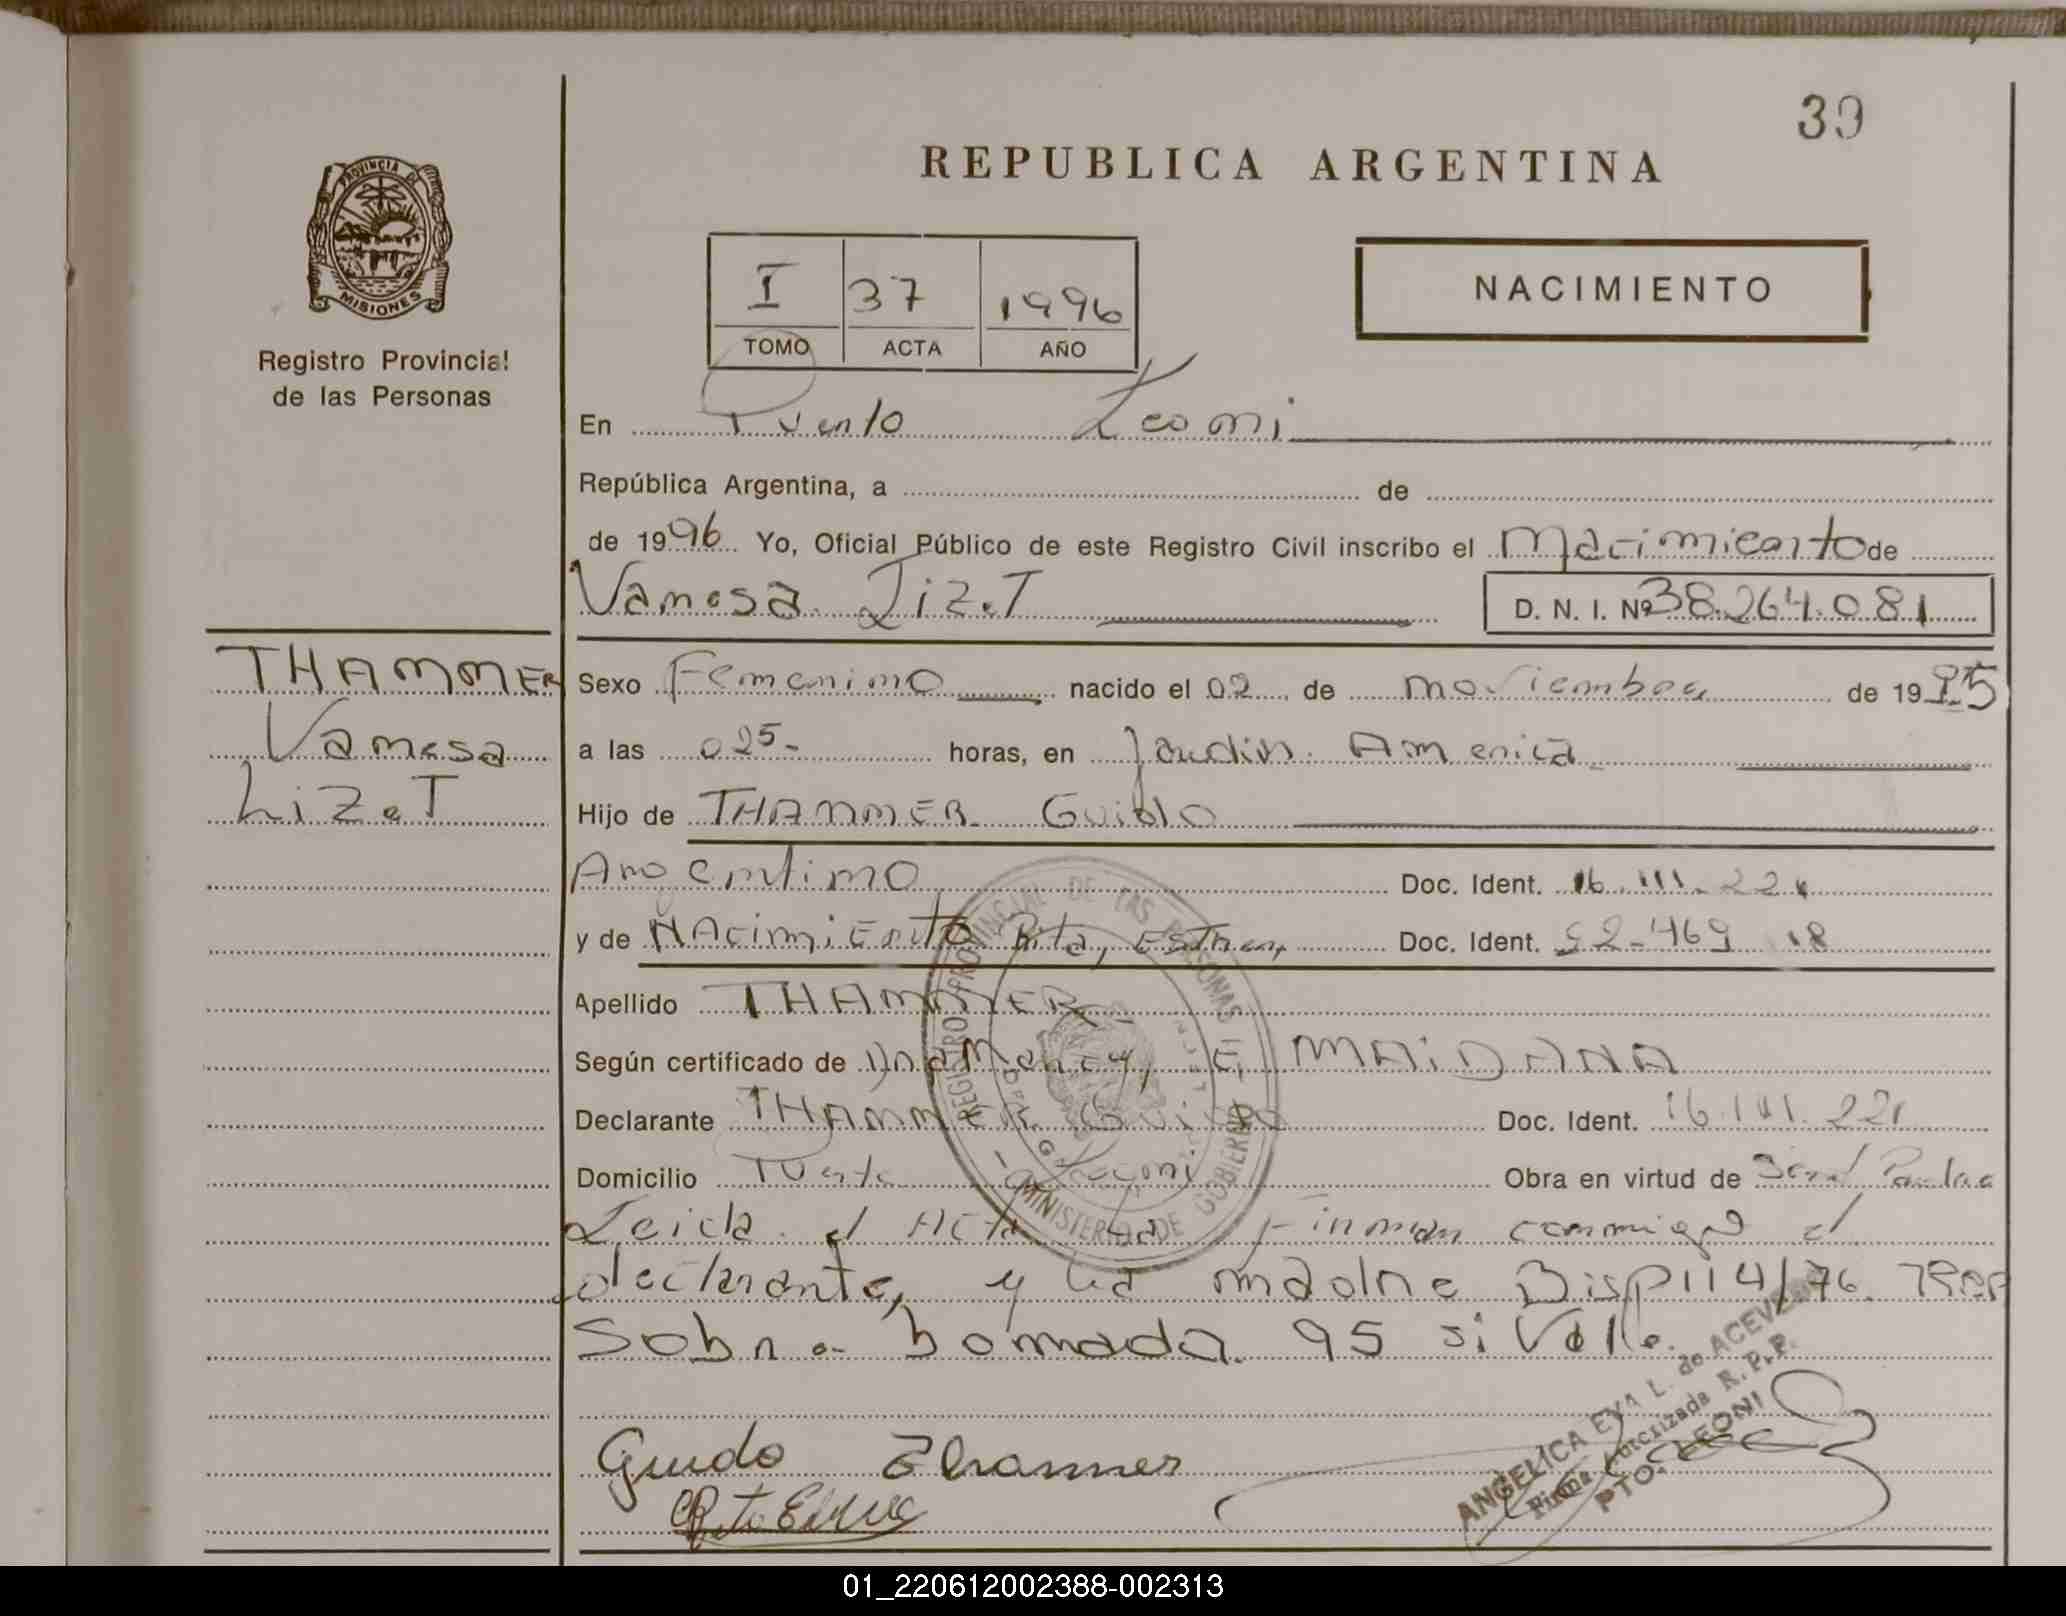 39
REPUBLICA ARGENTINA
PROVINCIA DE
MISIONES
Registro Provincial
de las Personas
I 37 1996
TOMO ACTA AÑO
NACIMIENTO
En Puerto Leoni
República Argentina, a de
de 1996 Yo, Oficial Público de este Registro Civil inscribo el Nacimiento de
Vanesa Lizet D. N. I. Nº 38.264.081
THAMMER
Vanesa
Lizet
Sexo Femenino nacido el 02 de noviembre de 1995
a las 025- horas, en Jardin America
Hijo de THAMMER Guido
Argentino Doc. Ident. 16.111.221
y de NAcimiento Rita, Esther, Doc. Ident.
Apellido THAMMER
Según certificado de E, MAiDANA
Declarante THAMMER Guido Doc. Ident. 16.111.221
Domicilio Puerto Leoni Obra en virtud de
Leida el Acta la Firman conmigo el
declarante, y la madre Disp 114/76.
Sobre bonrada 95 si Vale.
REGISTRO PROVINCIAL DE LAS PERSONAS
MINISTERIO DE GOBIERNO
Guido Thammer
Rita
ANGELICA EVA L. de ACEVEDO
Firma Autorizada R.P.P.
PTO. LEONI
01_220612002388-002313